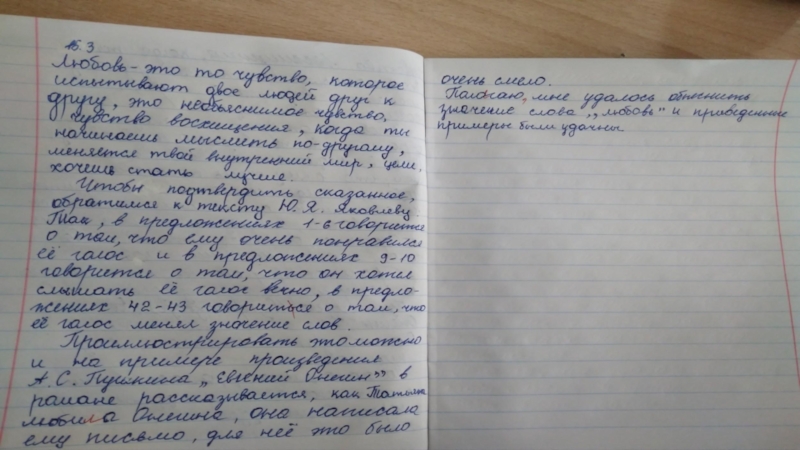 15.3
Любовь - это то чувство, которое
испытывают двое людей друг к
другу, это необъяснимое чувство,
чувство восхищения, когда ты
начинаешь мыслить по-другому,
меняется твой внутренний мир, цели,
хочешь стать лучше.
Чтобы подтвердить сказанное,
обратимся к тексту Ю.Я. Яковлеву.
Так, в предложениях 1-6 говорится
о том, что ему очень понравился
её голос и в предложениях 9-10
говорится о том, что он хотел
слышать её голос вечно, в предло-
жениях 42-43 говориться о том, что
её голос менял значение слов.
Проиллюстрировать это можно
и на примере произведения
А.С. Пушкина „Евгений Онегин" в
романе рассказывается, как Татьяна
любила Онегина, она написала
ему письмо, для неё это было
очень смело.
Палагаю, мне удалось объяснить
значение слова „любовь" и приведенные
примеры были удачны.